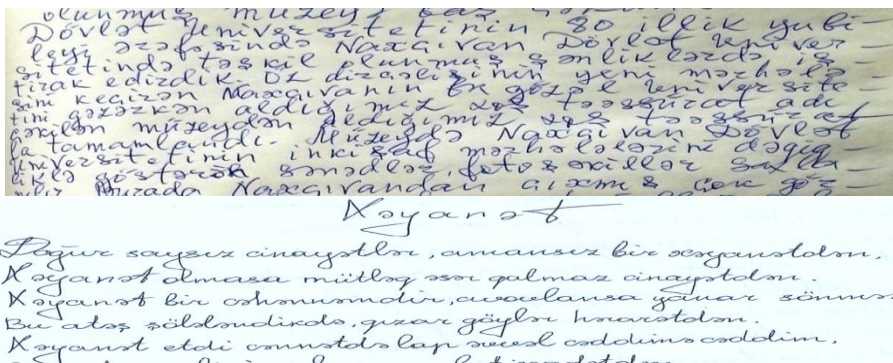 olunmuş muzeyi
Dövlət Universitetinin 80 illik yubi-
leyi ərəfəsində Naxçıvan Dövlət Univer-
sitetində təşkil olunmuş şənliklərdə iş-
tirak edirdik. Öz dirçəlişinin yeni mərhələ-
sini keçirən Naxçıvanın ən gözəl Universite-
tini gəzərkən aldığımız xoş təəssürat adı
çəkilən müzeydən aldığımız xoş təəssürat-
la tamamlandı. Müzeydə Naxçıvan Dövlət
Universitetinin inkişaf mərhələlərini dəqiq-
liklə göstərən sənədlər, fotoşəkillər saxla-
nılır. Burada Naxçıvandan çıxmış çox gör-
Xəyanət
Doğur saysız cinayətlər, amansız bir xəyanətdən,
Xəyanət olmasa mütləq əsər qalmaz cinayətdən.
Xəyanət bir cəhənnəmdir, avvalansa yanar sönməz
Bu atəş şölələndikdə, qızar göylər hərarətdən.
Xəyanət etdi cənnətdə lap əvvəl cəddimə cəddim,